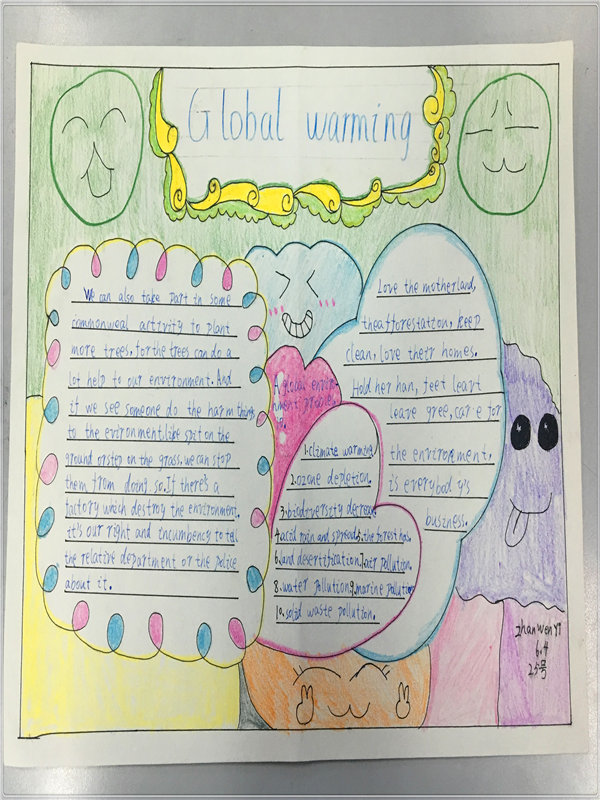 Global warming
We can also take part in some
commonweal artivity to plant
more trees. for the trees can do a
lot help to our environment. And
if we see someone do the harm things
to the evironment.like spit on the
ground orstep on the grass. we can stop
them from doing so. If there's a
factory which destroy the environment,
it's our right and incumbency to tell
the relative department or the police
about it.
A global enviro-
nment proble
1.climate warming
2.ozone depletion.
3.biodiversity decrease
4.acid rain and spreads.the forest has.
6.land desertification.7.air pollution.
8.water pollution9.marine pollution
10.solid waste pollution.
Love the motherland,
theafforestation, keep
clean, love their homes.
Hold her han, feet leart
leave gree, care for
the environment,
is everybody's
business.
zhanwenyi
6.4
25号